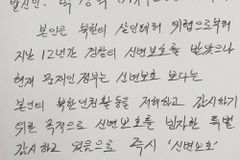 발신인:
본인은 북한의 살인테러 위협으로부터
지난 12년간 경찰의 신변보호를 받았으나
현재 문재인 정부는 신변보호 보다는
본인의 북한인권활동을 저해하고 감시하기
위한 목적으로 신변보호를 빙자한 특별
감시하고 있으므로 즉시 "신변보호"